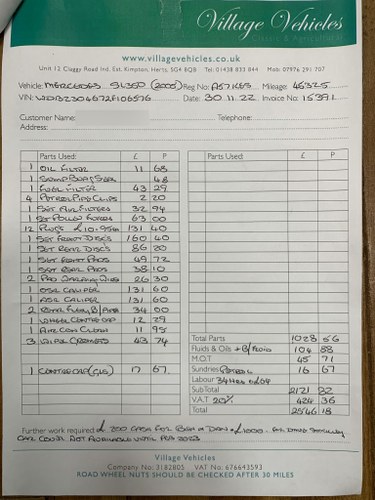 Village Vehicles
Classic & Agricultural
www.villagevehicles.co.uk
Unit 12 Claggy Road Ind. Est. Kimpton, Herts, SG4 8QB Tel: 01438 833 844 Mob: 07976 291 707
Vehicle: MERCEDES SL350 (2005) Reg No: Mileage: 46325
VIN: Date: 30.11.22 Invoice No: 15391
Customer Name: Telephone:
Address:
Parts Used: £ P Parts Used: £ P
1 OIL FILTER 11 68
1 48
1 FUEL FILTER 43 29
4 PETROL PIPE CLIPS 2 20
1 SET AIR FILTERS 32 94
1 SET POLLEN FILTERS 63 00
12 PLUGS £10.95 EACH 131 40
1 SET FRONT DISCS 160 40
1 SET REAR DISCS 86 20
1 SET FRONT PADS 49 72
1 SET REAR PADS 38 10
2 PAD WIRES 26 30
1 OSR CALIPER 131 60
1 CALIPER 131 60
2 34 00
1 WHEEL CENTRE CAP 12 29
1 AIR CON CLEAN 11 95
3 43 74
1 CENTRE CAP 17 67
Total Parts 1028 56
Fluids & Oils + B/FLUID 104 88
M.O.T 45 71
Sundries 16 67
Labour 34 HRS
SubTotal 2121 82
V.A.T 20% 424 36
Total 2546 18
Further work required £ 200
CAR COVER NOT AVAILABLE UNTIL FEB 2023
Village Vehicles
Company No: 3182805 VAT No: 676643593
ROAD WHEEL NUTS SHOULD BE CHECKED AFTER 30 MILES